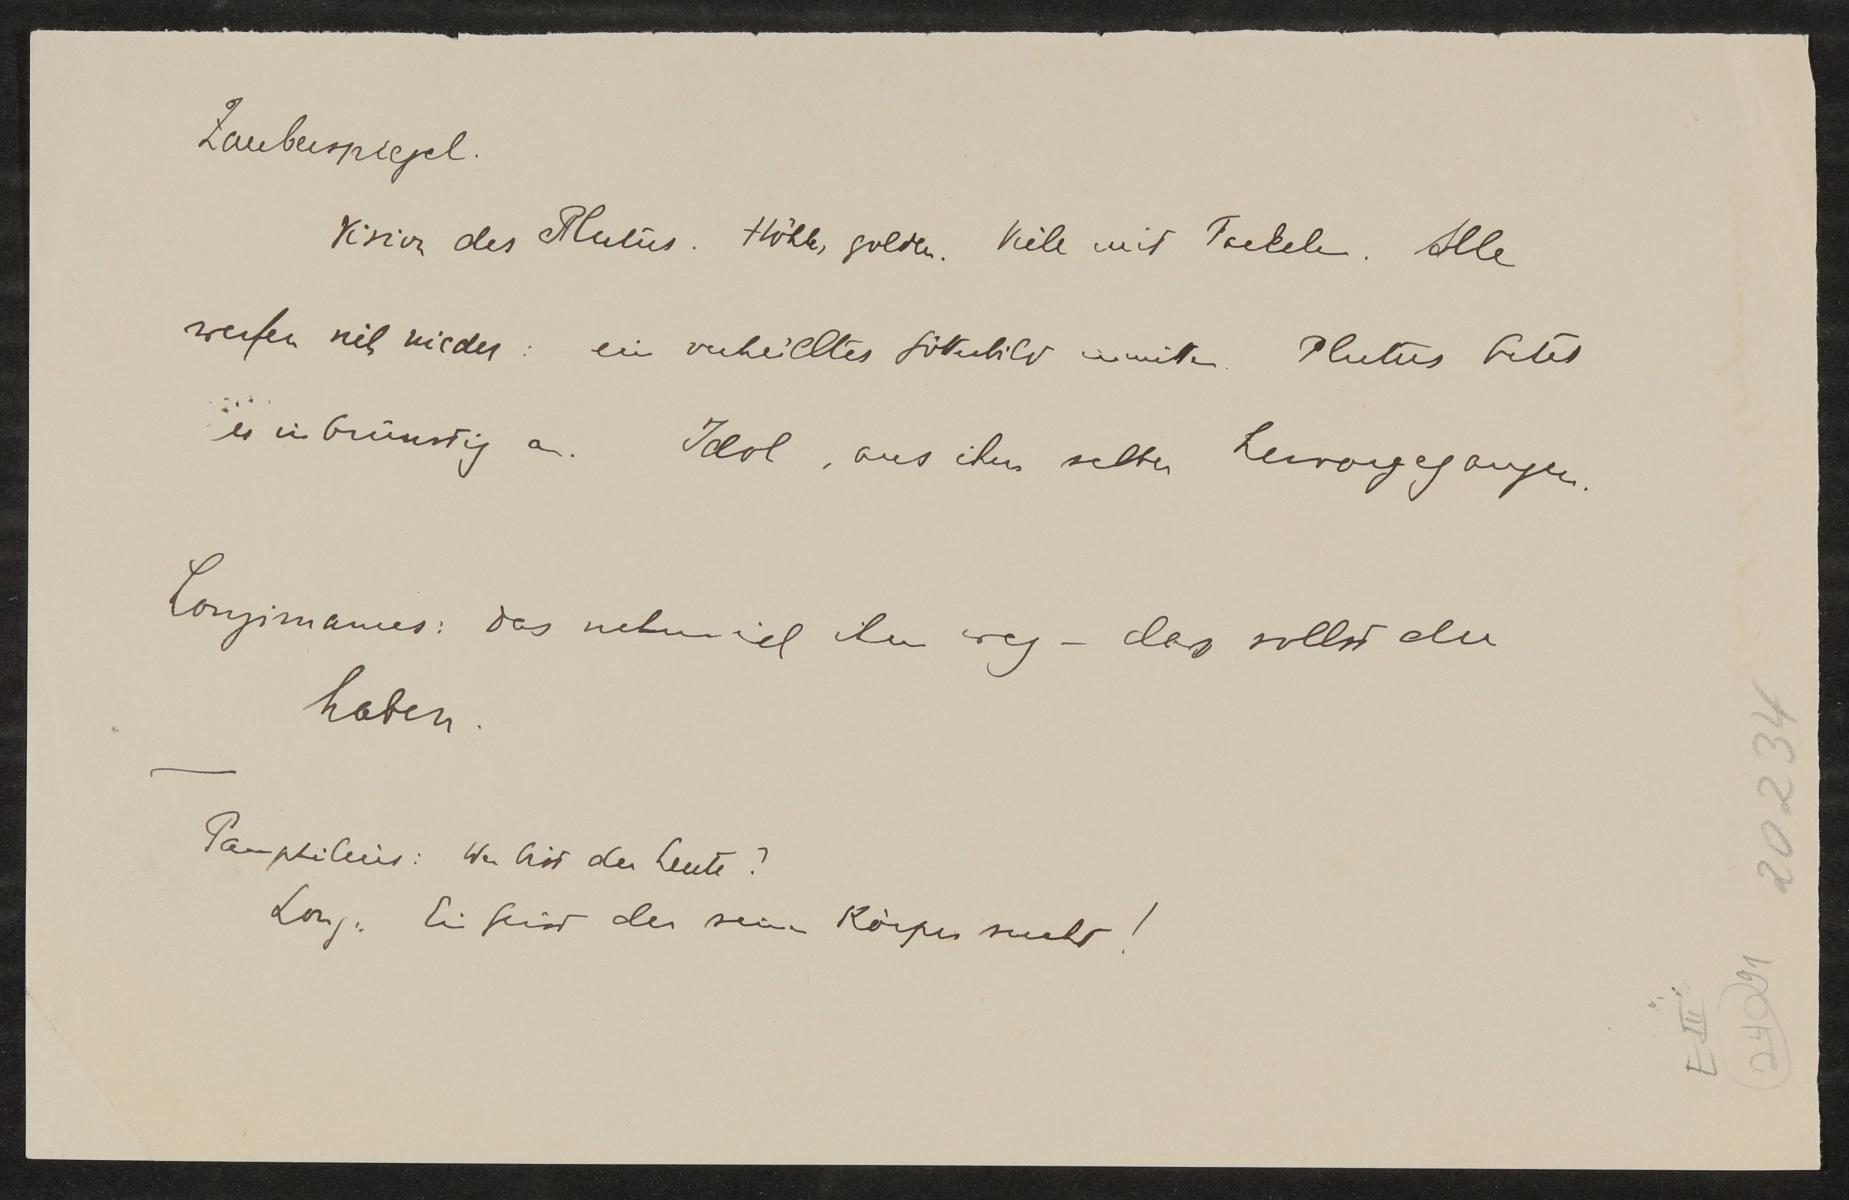 Zauberspiegel.
Vision des Plutus. Höhle, golden. Viele mit Fackeln. Alle
werfen sich nieder: ein verhülltes Götterbild inmitten. Plutus betet
es inbrünstig an. Idol, aus ihm selber hervorgegangen.
Longimanus: das nehme ich ihm weg – das sollst du
haben.
Pamphilius: Wer bist du heute?
Long: Ein Geist der seinen Körper sucht!
20234
E III
240 91